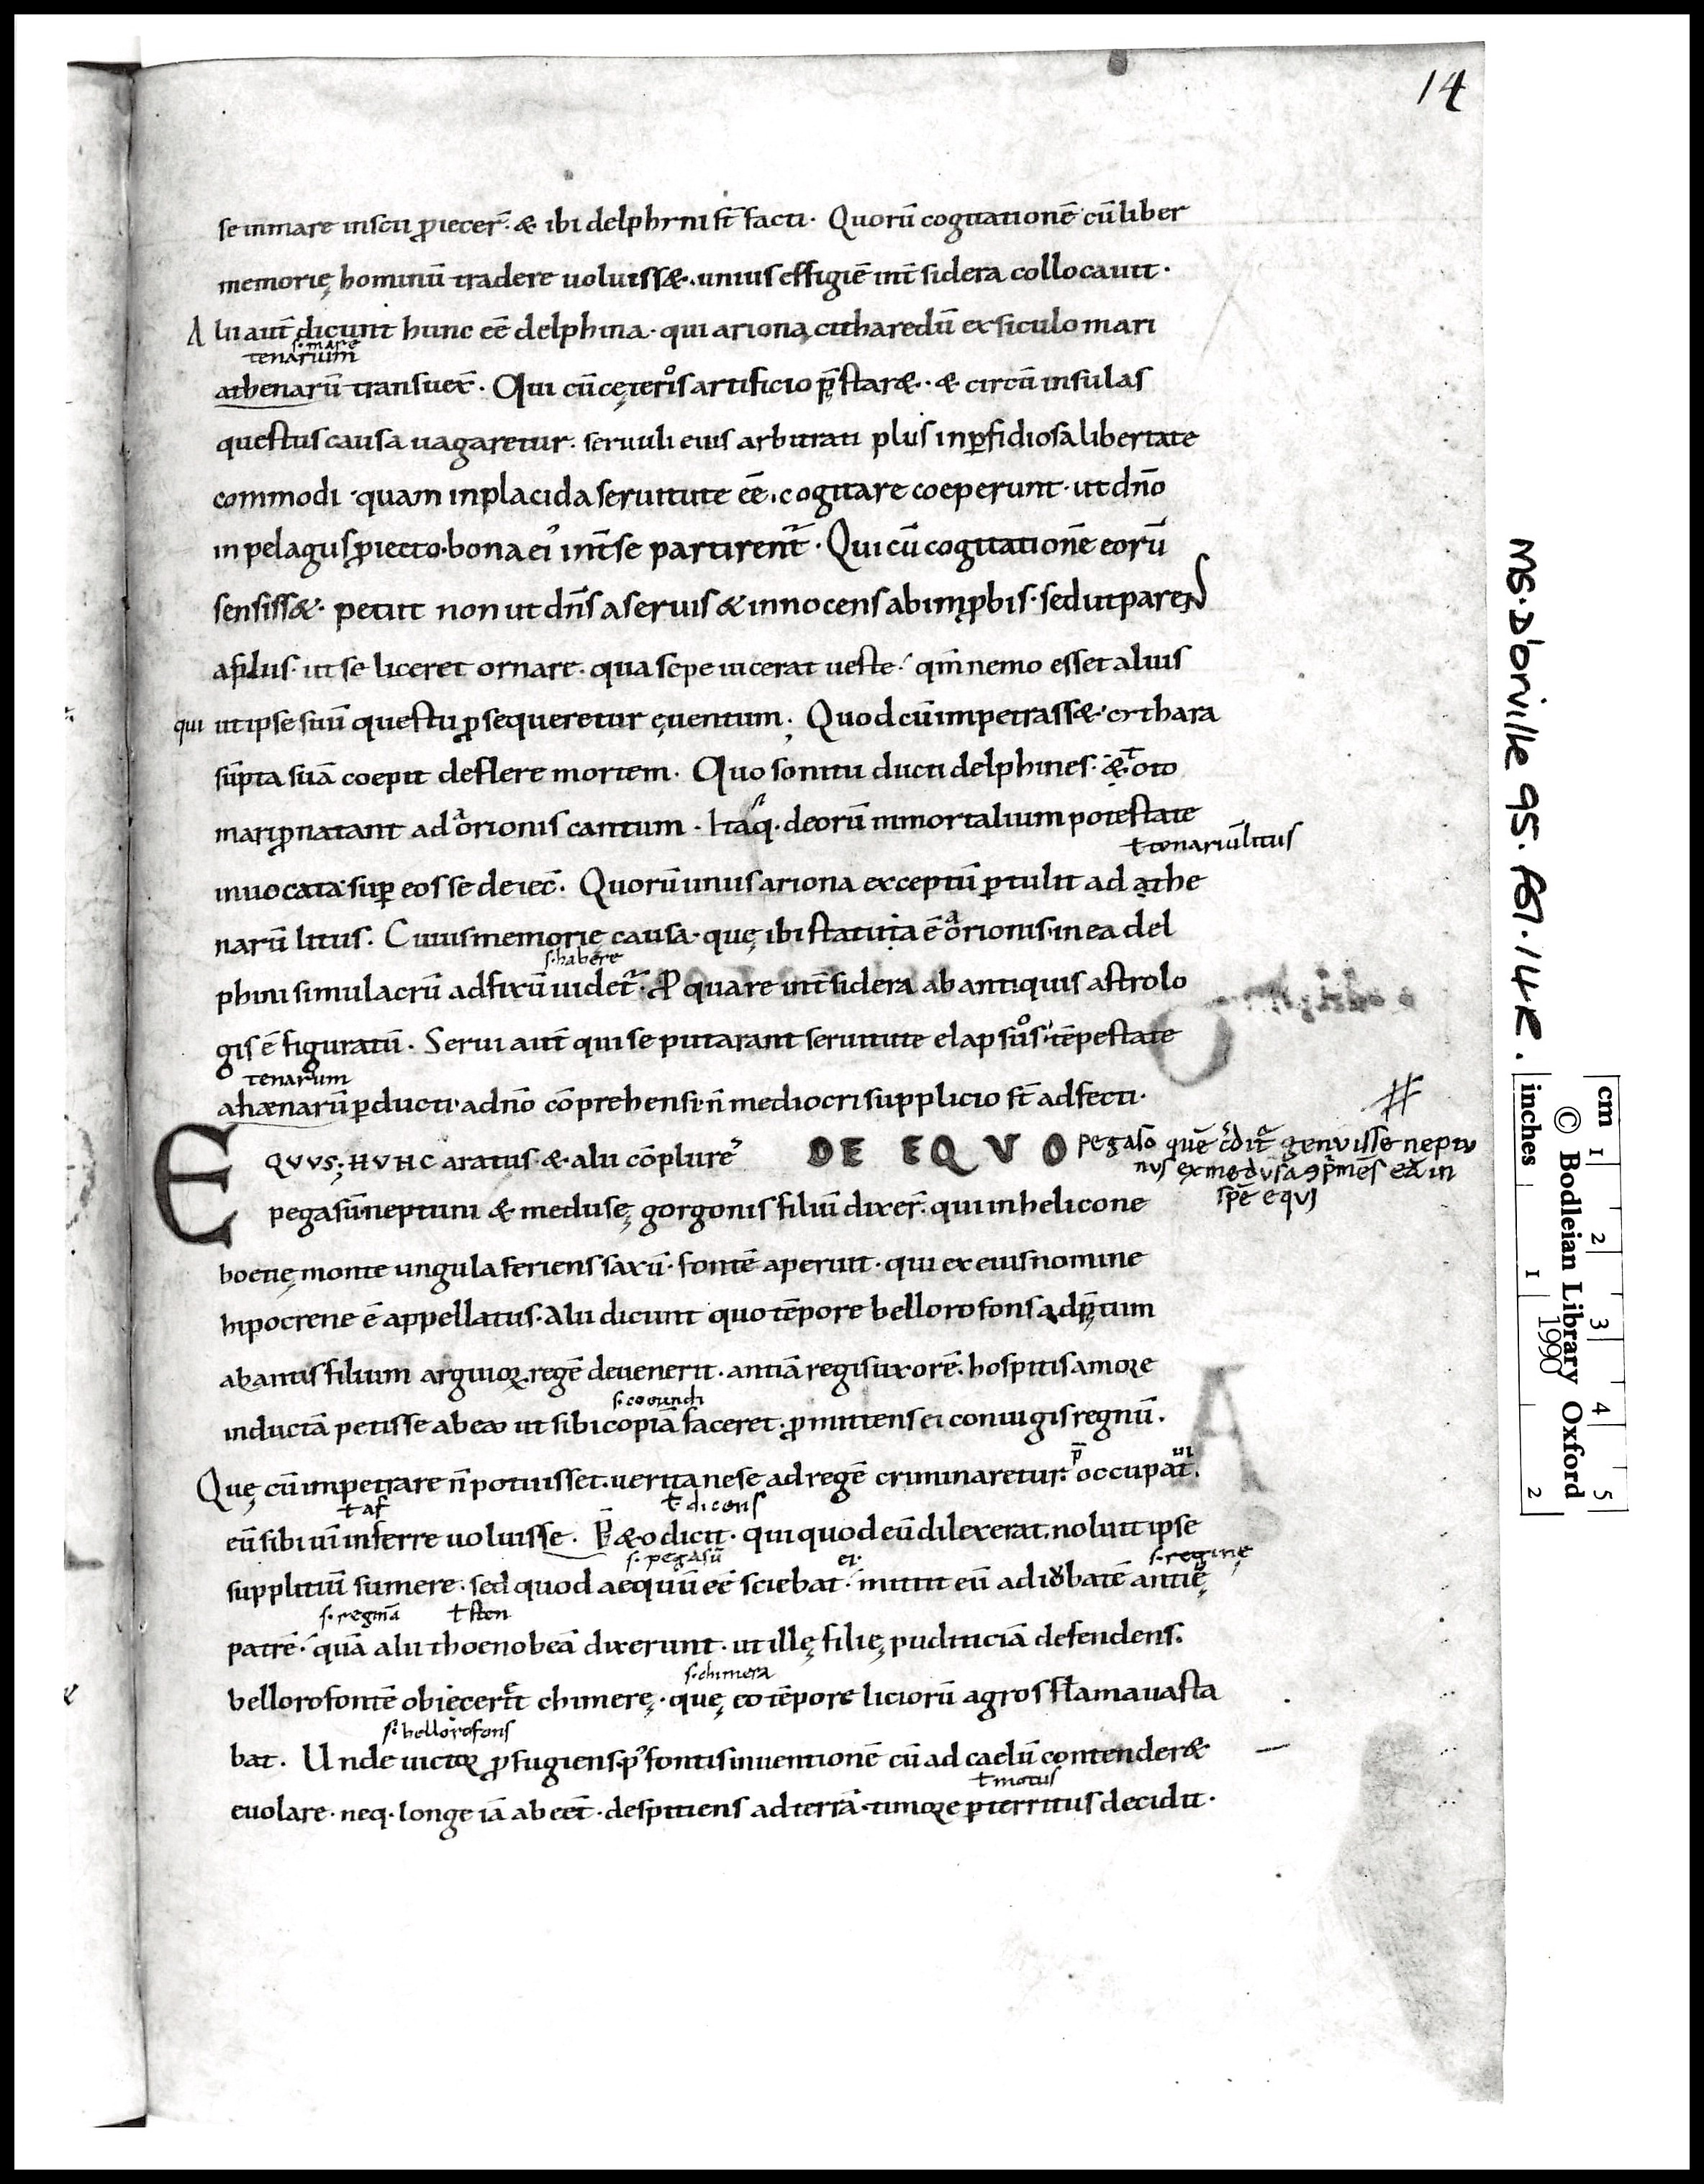 14
se inmare inscii ꝓiecer̄· & ibi delphini st̄ facti· Quorū cogitationē cū liber
memorię hominū tradere uoluiss&· unius effigiē int̄ sidera collocauit·
Alii aut̄ dicunt hunc eē delphina· qui arionạ citharedū ex siculo mari
s· mare
tenarium
athenarū transuex̄· Qui cū cęteros artificio p̄star&· & circū insulas
questus causa uagaretur· seruuli eius arbitrati plus in ꝑfidiosa libertate
commodi· quam in placida seruitute eē· cogitare coeperunt· ut dn̄o
in pelagus ꝓiecto· bona ei᾽ int̄ se partirent̄· Qui cū cogitationē eorū
sensiss&· petiit non ut dn̄s a seruis & innocens ab imꝓbis· sed ut parens
a filiis· ut se liceret ornare· qua sepe uicerat ueste· qm̄ nemo esset alius
qui ut ipse suū questu ꝓsequeretur ęuentum· Quod cū impetrass&· cithara
sūpta suā coepit deflere mortem· Quo sonitu ducti delphines· & toto
mari ꝓnatant ad orionis cantum· Itaq· deorū inmortalium potestate
ł tenariū litus
inuocata· suꝑ eos se deiec̄· Quorū unus ariona exceptū ꝑtulit ad athe
narū litus· Cuius memorię causa· quę ibi statuta ē orionis· in ea del
s· habere
phini simulacrū adfixū uidet̄· P quare int̄ sidera ab antiquis astrolo
gis ē figuratū· Serui aut̄ qui se putarant seruitute elapsos· tēpestate
tenarum
ahænarū ꝑducti· ad n̄o cōprehensi· n̄ mediocri supplicio st̄ adfecti·
EQVVS; HVNC aratus· & alii cōplure᾽ DE EQVO pegaso quē c̄dit̄ genuisse neptu
nus ex medusa ꝯp̄mēs eā in
spē equi
pegasū neptuni & medusę gorgonis filiū dixer̄· qui in helicone
boetię monte ungula feriens saxū· fontē aperuit· qui ex eius nomine
hipocrene ē appellatus· Alii dicunt quo tēpore bellorofons ad p̄tum
abantis filium arguiorꝫ regē deuenerit· antiā regis uxorē· hospitis amore
s· coeundi
inductā petisse ab eo ut sibi copiā faceret· ꝓmittens ei coniugis regnū·
Quę cū impetrare n̄ potuisset· uerita ne se ad regē criminaretur· p̄occupat ui
ł af
ł dicens
eū sibi uī inferre uoluisse· P&o dicit· qui quod eū dilexerat· noluit ipse
s· pegasū
ei·
s· reginę
supplitiū sumere· sed quod aequū eē sciebat· mittit eū ad iobatē antię
s· reginā
ł sten
patrē· quā alii thoenobeā dixerunt· ut illę filię pudiciciā defendens·
s· chimera
bellorofontē obiecerit chimerę· quę eo tēpore liciorū agros flāma uasta
s· bellorofons
bat· Unde uictor ꝓfugiens· p᾽ fontis inuentionē cū ad caelū contender&
ł motus
euolare· neq· longe iā abeēt· despitiens ad terrā· timore ꝑterritus decidit·
MS. D'Orville 95. fol. 14R.
cm 1 2 3 4 5
© Bodleian Library Oxford
1990
inches 1 2